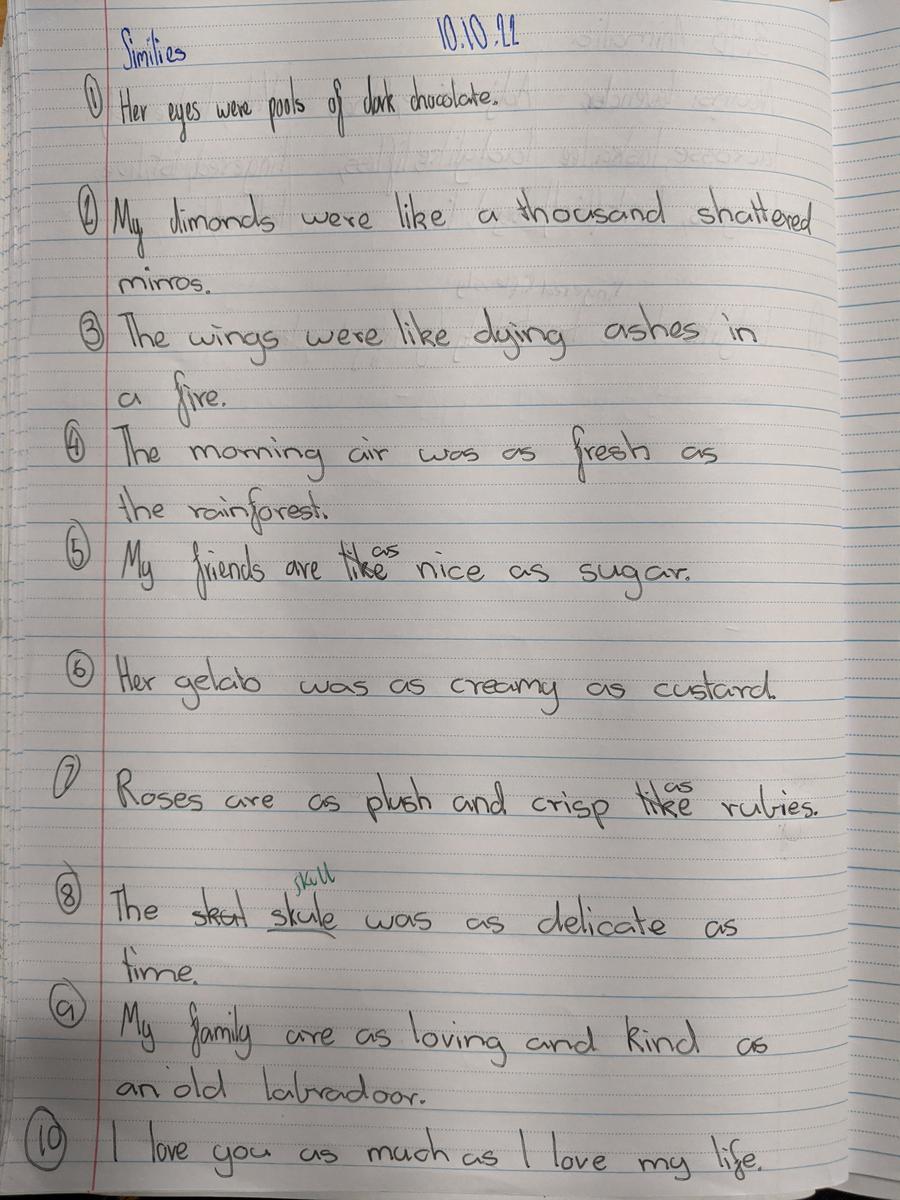 Similies 10.10.22
① Her eyes were pools of dark chocolate.
② My dimonds were like a thousand shattered
mirros.
③ The wings were like dying ashes in
a fire.
④ The morning air was as fresh as
the rainforest.
⑤ My friends are like as nice as sugar.
⑥ Her gelato was as creamy as custard.
⑦ Roses are as plush and crisp like as rubies.
skull
⑧ The skul skule was as delicate as
time.
⑨ My family are as loving and kind as
an old labradoor.
⑩ I love you as much as I love my life.